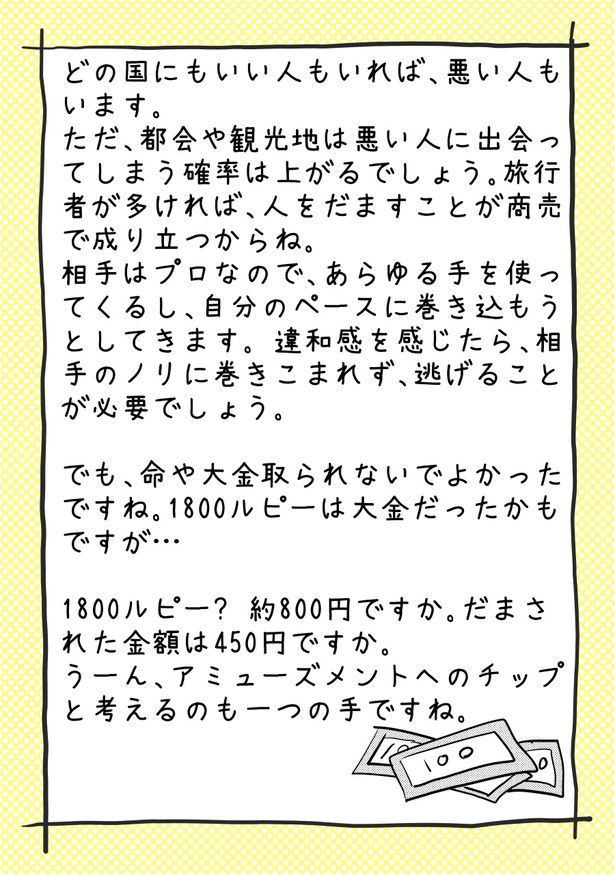 どの国にもいい人もいれば、悪い人も
います。
ただ、都会や観光地は悪い人に出会っ
てしまう確率は上がるでしょう。旅行
者が多ければ、人をだますことが商売
で成り立つからね。
相手はプロなので、あらゆる手を使っ
てくるし、自分のペースに巻き込もう
としてきます。 違和感を感じたら、相
手のノリに巻きこまれず、逃げること
が必要でしょう。
でも、命や大金取られないでよかった
ですね。1800ルピーは大金だったかも
ですが…
1800ルピー? 約800円ですか。だまさ
れた金額は450円ですか。
うーん、アミューズメントへのチップ
と考えるのも一つの手ですね。
10
100
0